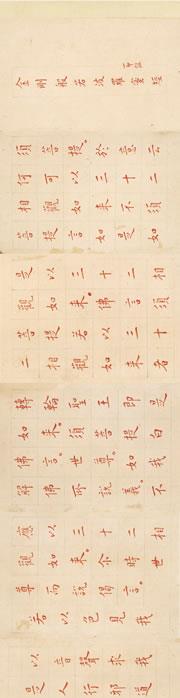 金剛般若波羅蜜經
須菩提。於意云
何可以三十二
相觀如來不須
菩提言如是如
是以三十二相
觀如來。佛言須
菩提若以三十
二相觀如來者
轉輪聖王即是
如來。須菩提白
佛言。世尊。如我
解佛所說義。不
應以三十二相
觀如來。尒時世
尊而說偈言。
若以色見我
以音聲求我
是人行邪道